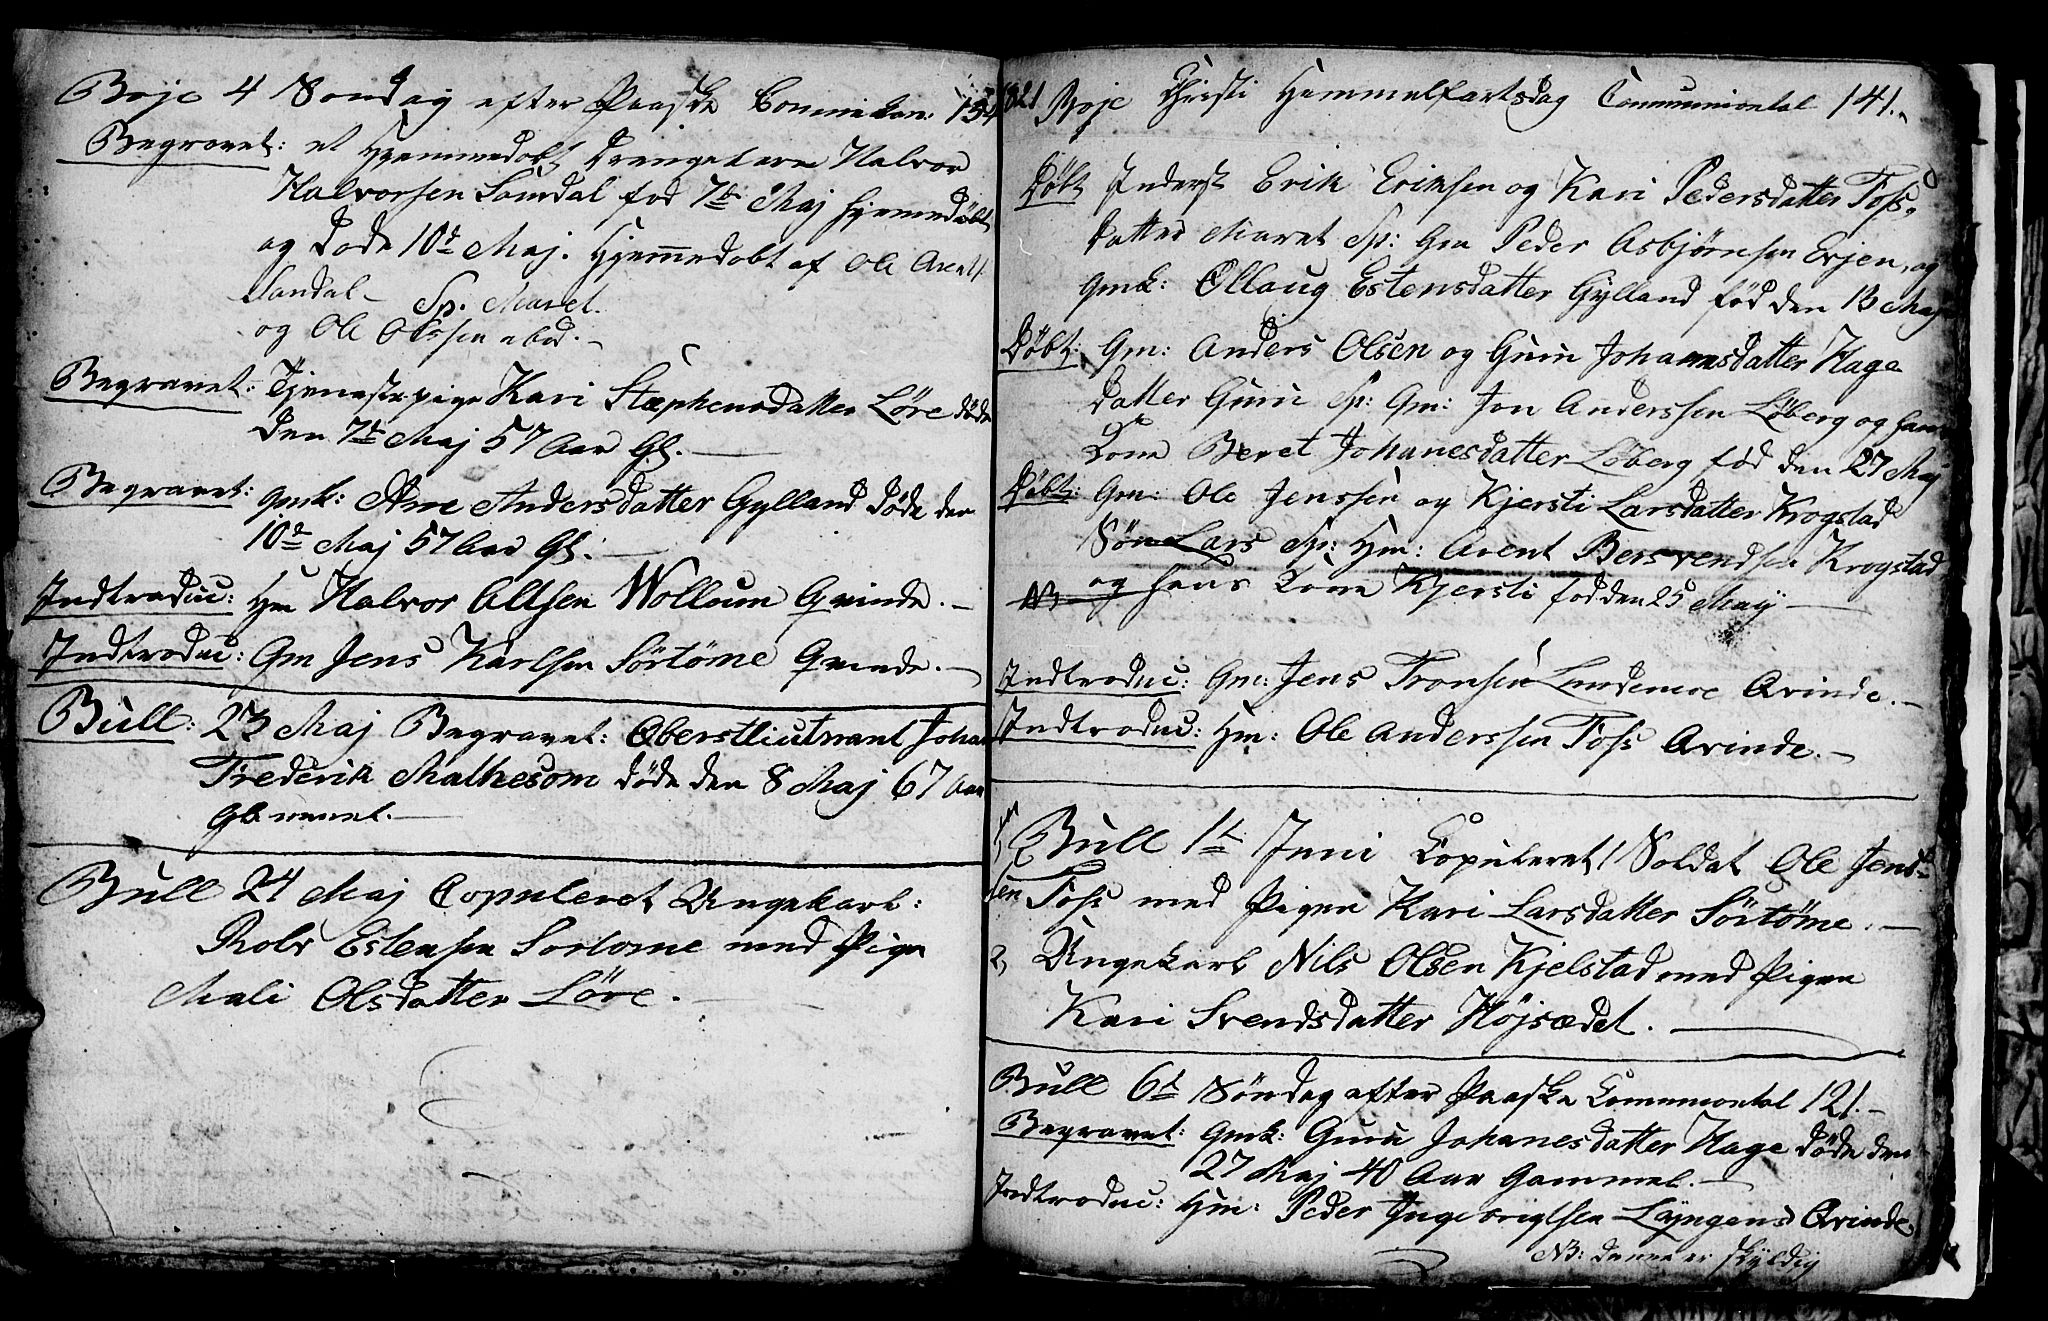 Boje 4 Søndag efter Paaske Commikan: 134
Begravet: et Hjemmedøbt Drengebarn Halvor
Halvorsen Samdal fød 7de Maj hjemmedøbt
og Døde 10de Maj. Hjemmedøbt af Ole Arentz
Sandal - Sp. Maret
og Ole Olssen ibid. -
Begravet: Tjenestepige Kari Stæphensdatter Løre døde
den 7de Maj 57 Aar Gl. -
Begravet: gmk: Ane Andersdatter Gylland Døde den
10de Maj 57 Aar Gl: -
Indtroduc: Hm Halvor Ollsen Wollum Qvinde. -
Indtroduc: Gm Jens Karlsen Sørtøme Qvinde. -
Bull: 23 Maj Begravet: Oberstliutnant Johan
Frederik Mathesom døde den 8 Maj 67 Aar
Bull 24 Maj Copuleret Ungekarl:
Rolv Estensen Sørtøme med Pige
Mali Olsdatter Løre. -
1821 Boje Christi Hemmelfartsdag Communiontal 141.
Døbt Inderst Erik Eriksen og Kari Pedersdatter Foss
Datter Maret Sp: Gm Peder Asbjørnsen Evjen, og
gmk: Ollaug Estensdatter Gylland fød den 13 Maj
Døbt: Gm: Anders Olsen og Guru Johannsdatter Hage
Datter Guru Sp: Gm: Jon Anderssen Løberg og hans
Kone Beret Johanesdatter Løberg fød den 27 Maj
Døbt: Gm: Ole Jenssen og Kjersti Larsdatter Krogstad
Søn Lars Sp: Hm: Arent Bersvendsen Krogstad
NB og hans Kone Kjersti fød den 25 Maij -
Indtroduc: Gm: Jens Tronsen Landemoe Qvinde. -
Indtroduc: Hm: Ole Anderssen Foss Qvinde. -
1, Bull 1ste Juni Copuleret 1 Soldat Ole Jend-
sen Foss med Pigen Kari Larsdatter Sørtøme. -
2, Ungekarl Nils Olsen Kjelstad med Pigen
Kari Svendsdatter Højsædet. -
Bull 6te Søndag efter Paaske Communiontal 121. -
Begravet: gmk: Guru Johanesdatter Hage døde den
27 Maj 40 Aar Gammel. -
Indtroduc: Hm: Peder Ingebrigtsen Løyngens Qvinde.
NB: denne er skyldig